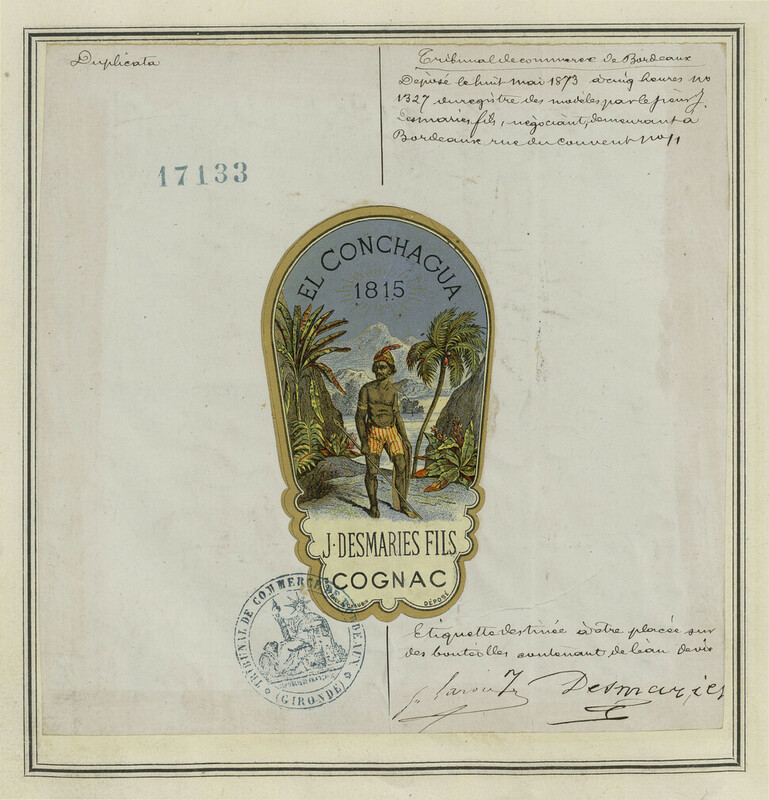 Duplicata
Tribunal de commerce de Bordeaux
Déposé le huit mai 1873 à cinq heures no
1327 du registre des modèles par le sieur J.
Desmaries fils, négociant, demeurant à
Bordeaux rue du Couvent no 11
17133
EL CONCHAGUA
1815
J. DESMARIES FILS
COGNAC
DÉPOSÉ
TRIBUNAL DE COMMERCE DE BORDEAUX
(GIRONDE)
Etiquette destinée à être placée sur
des bouteilles contenant de l'eau de vie
Desmaries